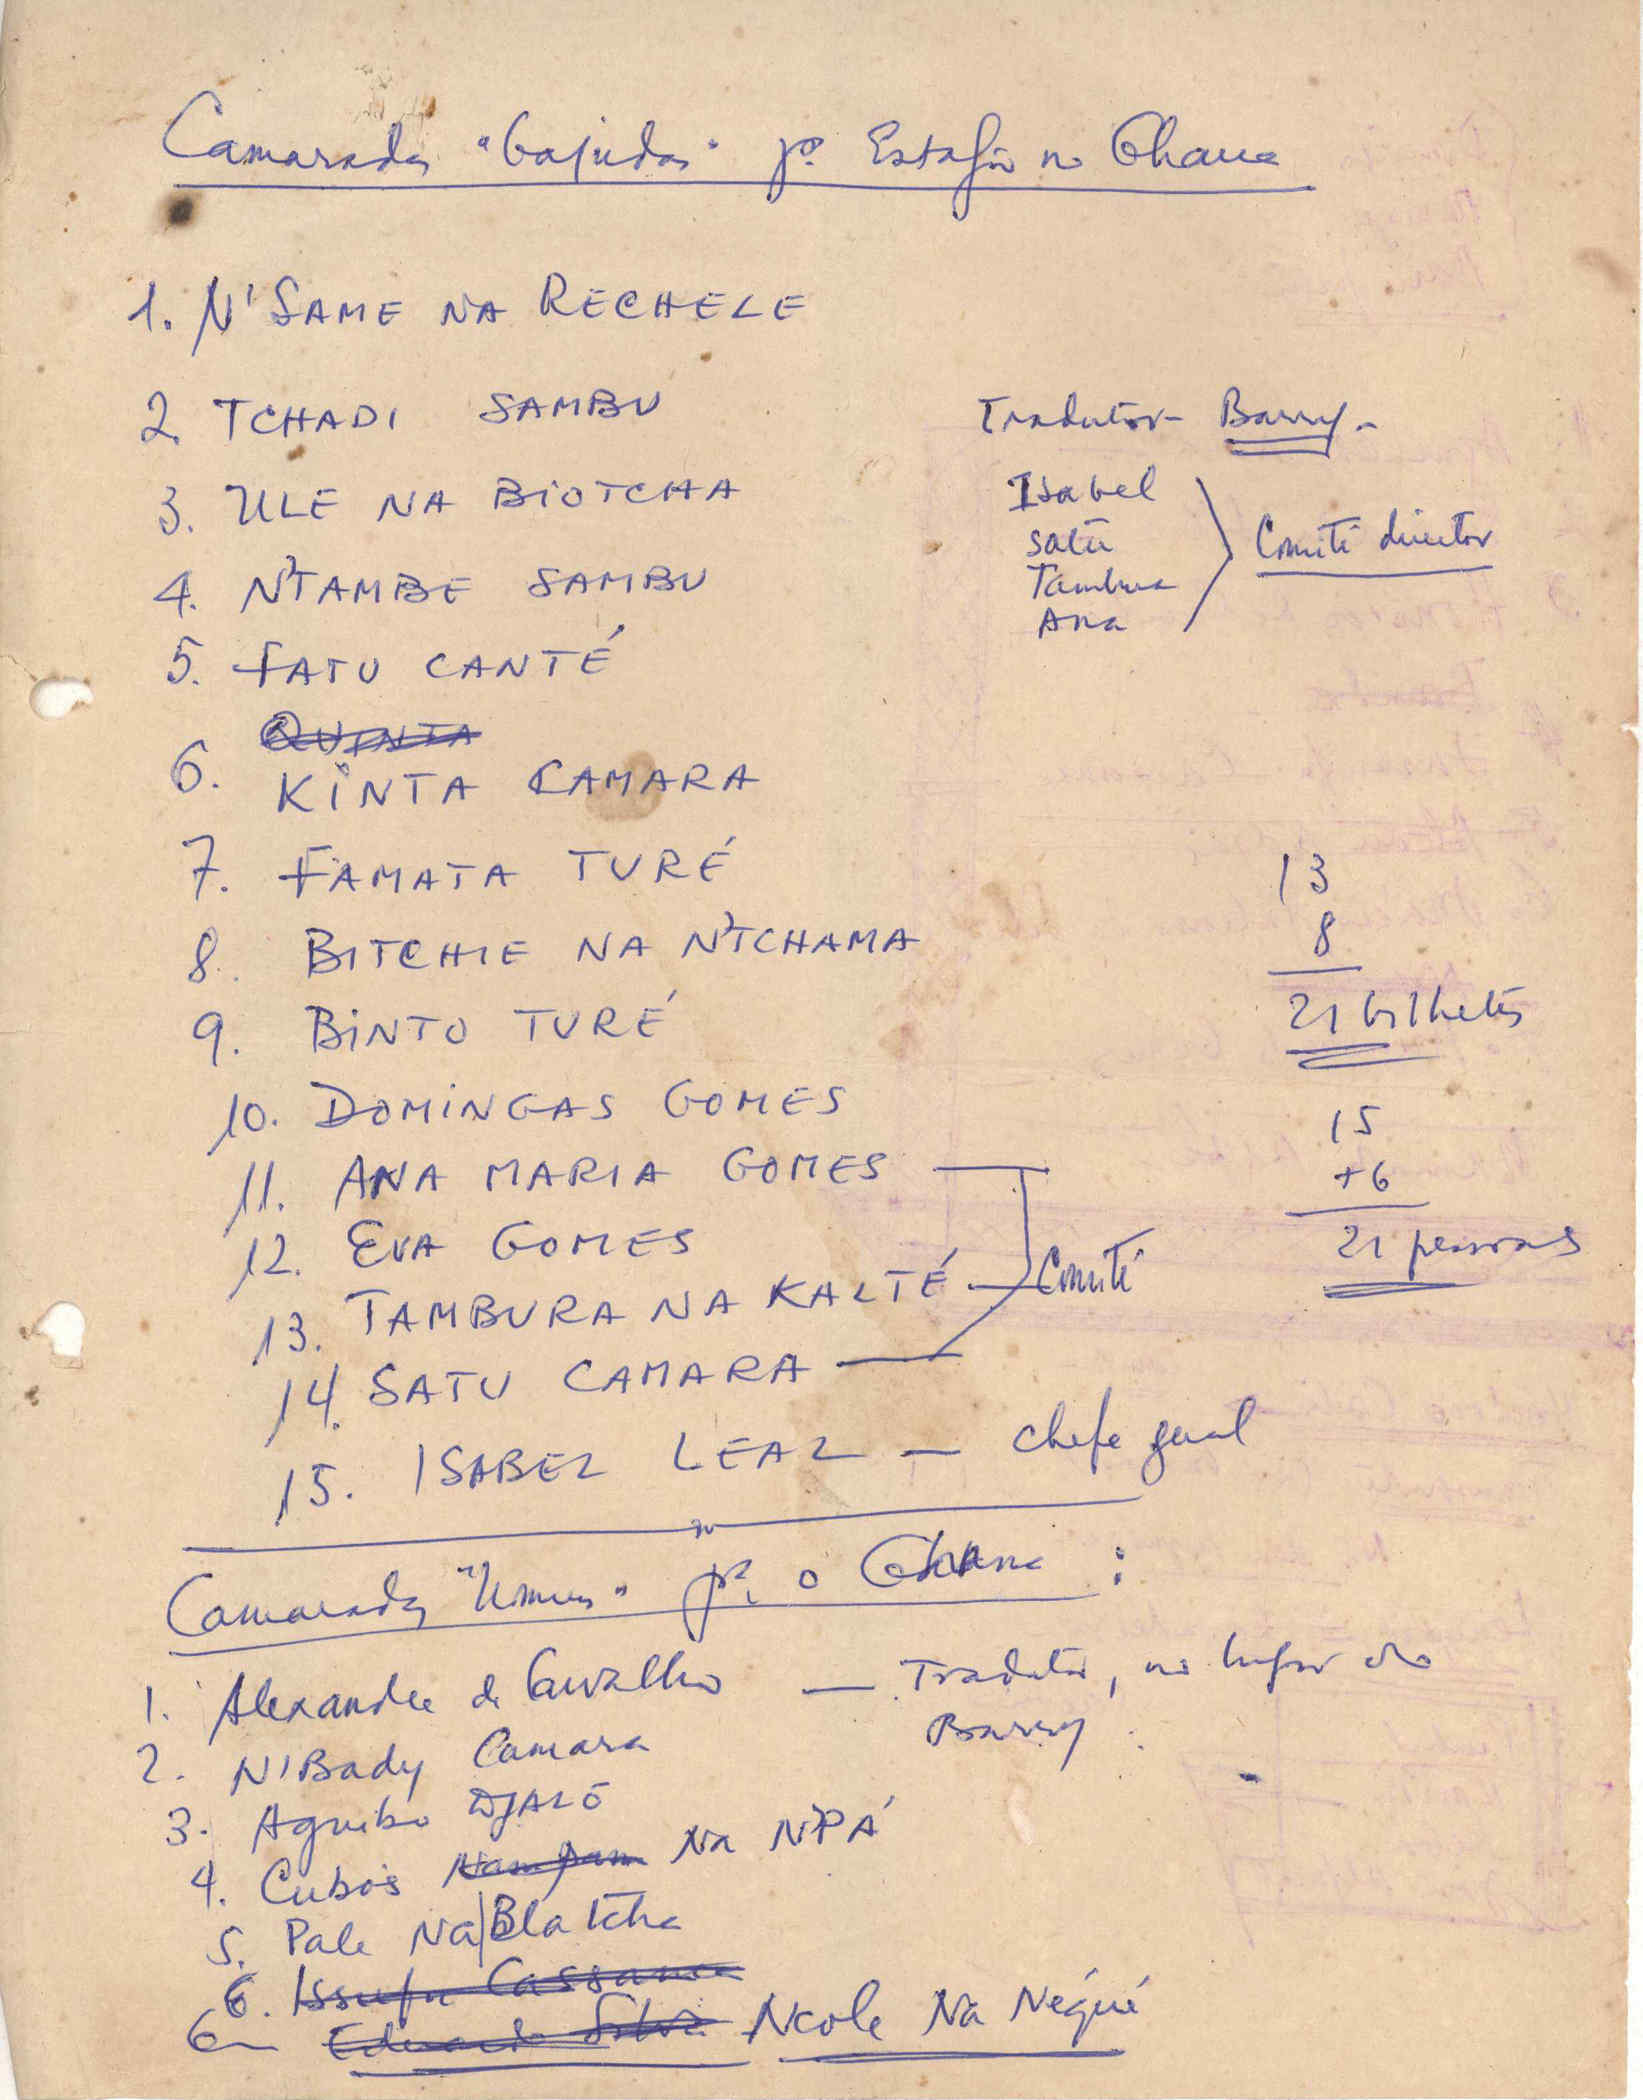 Camaradas "bajudas" pª Estágio no Ghana
1. N'SAME NA RECHELE
2. TCHADI SAMBU
3. ULE NA BIOTCHA
4. N'TAMBE SAMBU
5. FATU CANTÉ
QUINTA
6. KINTA CAMARA
7. FAMATA TURÉ
8. BITCHIE NA N'TCHAMA
9. BINTO TURÉ
10. DOMINGAS GOMES
11. ANA MARIA GOMES
12. EVA GOMES
13. TAMBURA NA KALTÉ
Comité
14. SATU CAMARA
15. ISABEL LEAL — chefe geral
Tradutor - Barry -
Isabel
Satú
Tambura
Ana
Comité director
13
8
21 bilhetes
15
+6
21 pessoas
Camaradas "Homens" pª o Ghana :
1. Alexandre de Carvalho — Tradutor, no lugar do
Barry.
2. N'Bady Camara
3. Aguibo DJALÓ
4. Cubois Na N'PÁ
5. Pale Na Blatcha
6. Issufu Cassama
6 — Eduardo Silva Ncole Na Négué